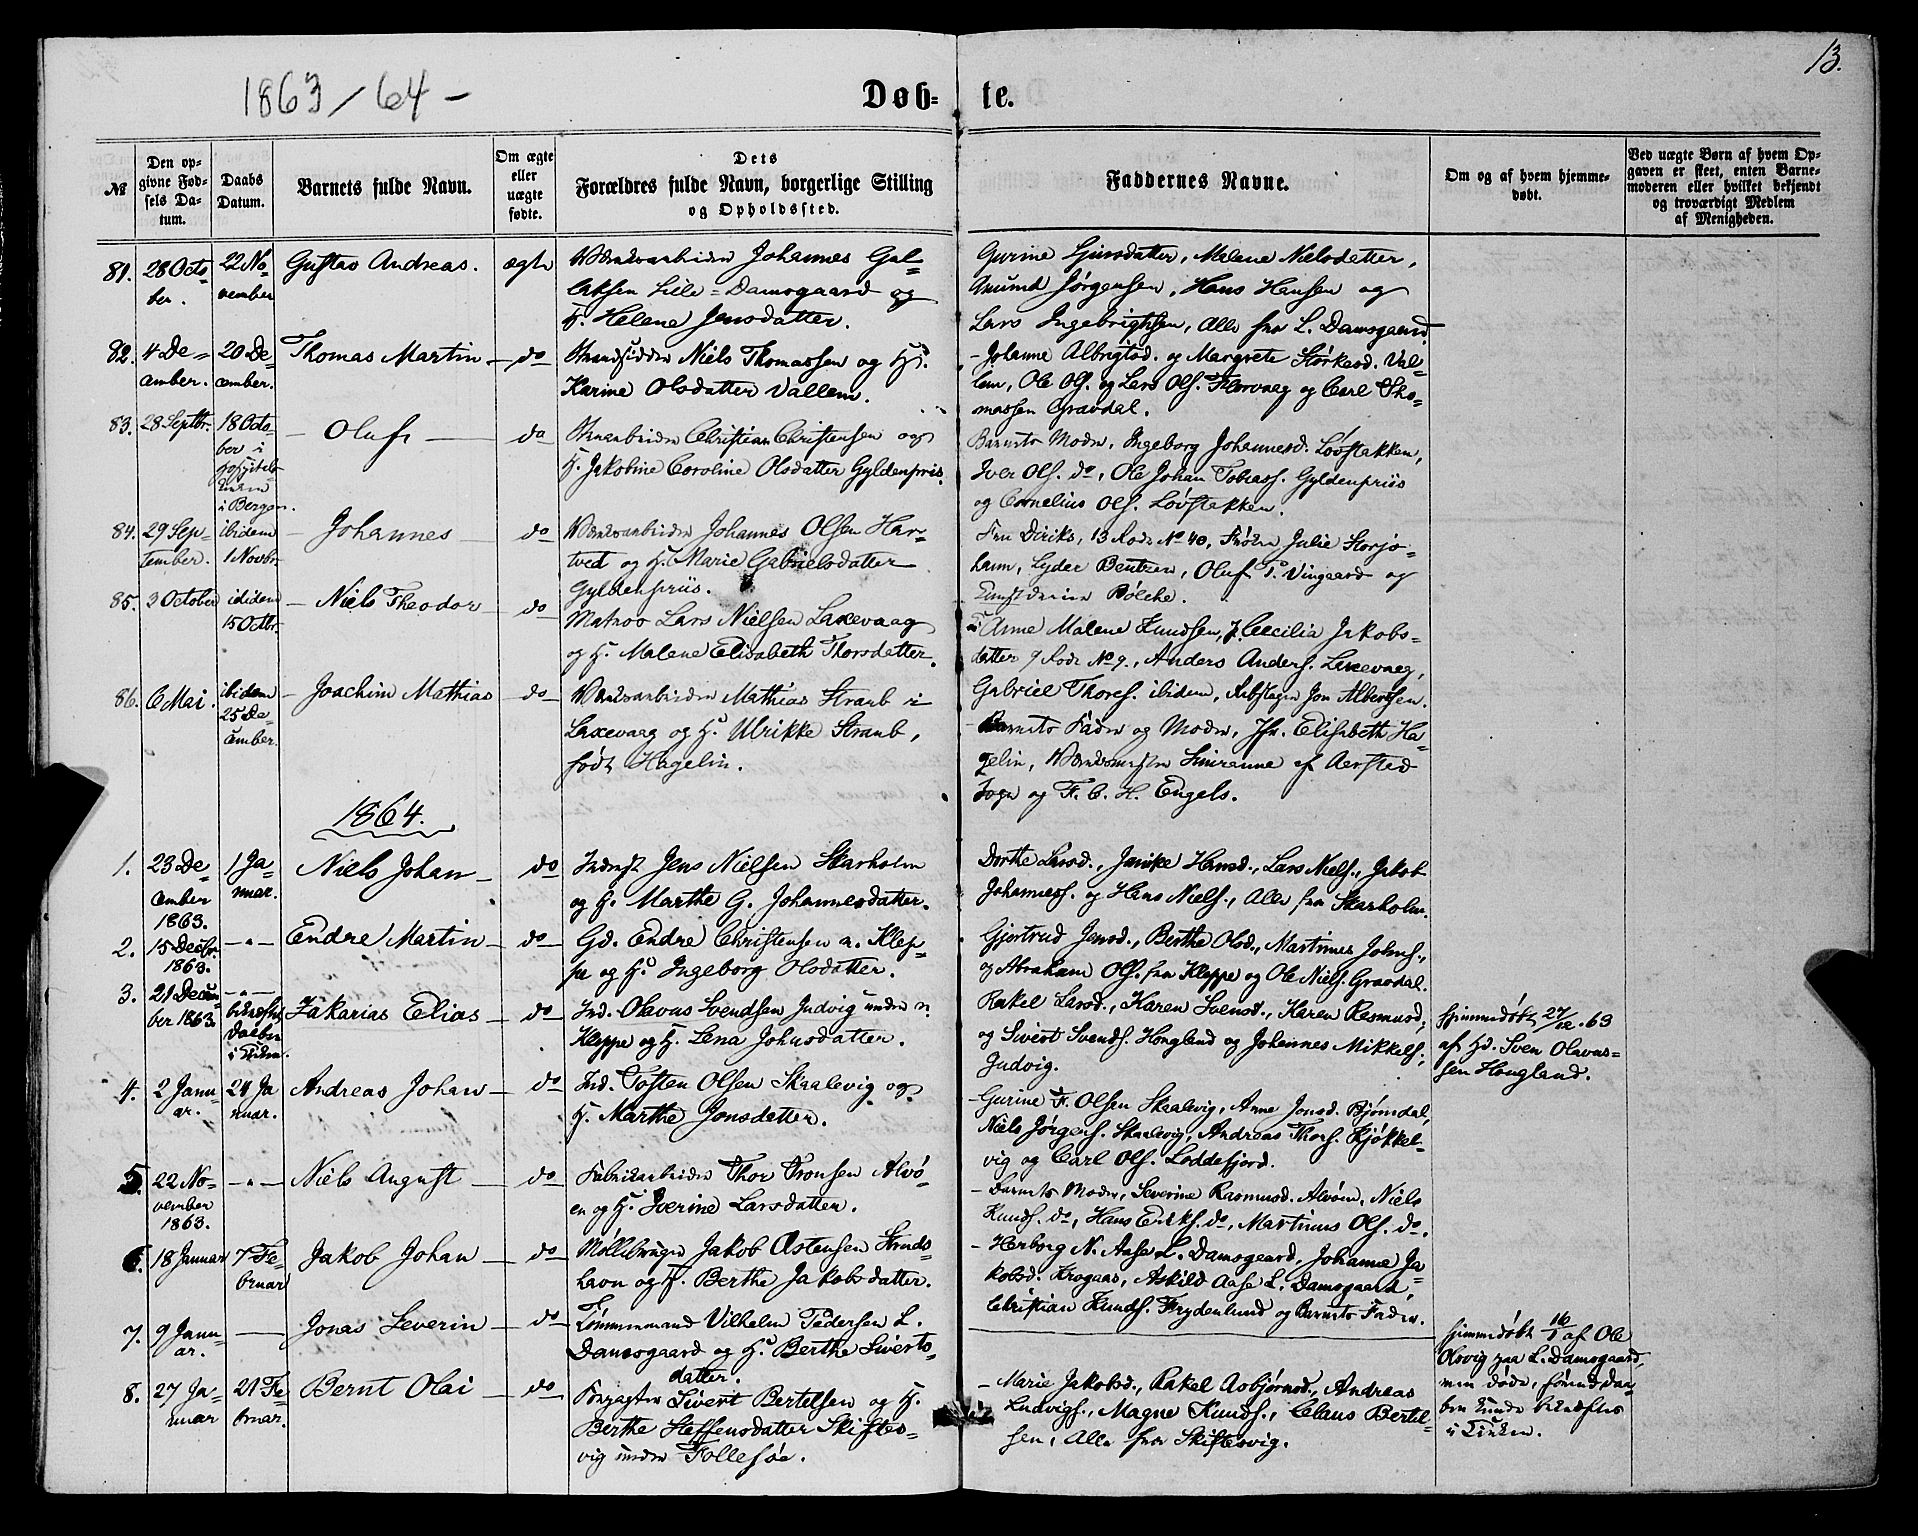 13.
1863/64 –
Døb- te.
№
Den op-
givne Fød-
sels Da-
tum.
Daabs
Datum.
Barnets fulde Navn.
Om ægte
eller
uægte
fødte.
Dets
Forældres fulde Navn, borgerlige Stilling
og Opholdssted.
Faddernes Navne.
Om og af hvem hjemme-
døbt.
Ved uægte Børn af hvem Op-
gaven er skeet, enten Barne-
moderen eller hvilket bekjendt
og troværdigt Medlem
af Menigheden.
81.
28 Octo-
ber.
22 No-
vember
Gustav Andreas.
ægte
Johannes Gul-
laksen Lille-Damsgaard og
H. Helene Jensdatter.
Gurine Sjursdatter, Malene Nielsdatter,
Anund Jørgensen, Hans Hansen og
Lars Ingebrigtsen, Alle fra L. Damsgaard.
82.
4 De-
cember.
20 De-
cember.
Thomas Martin
do
Strandsidder Niels Thomassen og H.
Karine Olsdatter Vallem.
Johanne Albrigtsd. og Margrete Størkesd. Val-
lem, Ole Ols. og Lars Ols. Florvaag og Carl Tho-
massen Gravdal.
83.
28 Septbr.
18 Octo-
ber i
Hospitals
Kirken
i Bergen.
Oluf
do
Christian Christensen og
H. Jakobine Caroline Olsdatter Gyldenpriis.
Barnets Moder, Ingeborg Johannesd. Løvstakken,
Iver Ols. do, Ole Johan Tobiass. Gyldenpriis
og Cornelius Ols. Løvstakken.
84.
29 Sep-
tember.
ibidem
1 Novbr.
Johannes
do
Johannes Olsen Har-
tved og H. Marie Gabrielsdatter
Gyldenpriis.
Fru Diriks, 13 Rode No 40, Frøken Julie Storjo-
hann, Lyder Bentzen, Oluf T. Vingaard og
Bølche.
85.
3 October
ibidem
15 Octbr.
Niels Theodor
do
Matros Lars Nielsen Laxevaag
og H. Malene Elisabeth Thorsdatter.
Anne Malene Knudsen, J. Cecilia Jakobs-
datter 9 Rode No 9., Anders Anders. Laxevaag,
Gabriel Thores. ibidem, Jon Albertsen.
86.
6 Mai.
ibidem
25 De-
cember.
Joachim Mathias
do
Mathias Straub i
Laxevaag og H. Ulrikke Straub,
født Hagelin.
Barnets Fader og Moder, Jfr. Elisabeth Ha-
gelin, af Aarstad
Sogn og F. C. H. Engels.
1864.
1.
23 De-
cember
1863.
1 Ja-
nuar.
Niels Johan
do
Inderst Jens Nielsen Skarholm
og H. Marthe G. Johannesdatter.
Dorthe Larsd., Janike Hansd., Lars Niels., Jakob
Johanness. og Hans Niels., Alle fra Skarholm.
2.
15 Decbr.
1863.
– " –
Endre Martin
do
Gd. Endre Christensen n. Klep-
pe og H. Ingeborg Olsdatter.
Gjertrud Jensd., Berthe Olsd., Martinus Johns.,
og Abraham Ols. fra Kleppe og Ole Niels. Gravdal.
3.
21 Decem-
ber 1863.
– " –
bekræftet
Daaben
i Kirken.
Zakarias Elias
do
Ind. Olavus Svendsen Judvig under n.
Kleppe og H. Lena Johnsdatter.
Rakel Larsd., Karen Svensd., Karen Rasmusd.,
og Sivert Svends. Hongland og Johannes Mikkels.
Judvig.
Hjemmedøbt 27/12.63
af Gd. Sven Olavus-
sen Hongland.
4.
2 Janu-
ar.
24 Ja-
nuar.
Andreas Johan
do
Ind. Tosten Olsen Skaalevig og
H. Marthe Jonsdatter.
Gurine F. Olsen Skaalevig, Anne Jonsd. Bjørndal,
Niels Jørgens. Skaalevig, Andreas Thors. Kjøkkel-
vig og Carl Ols. Loddefjord.
5.
22 No-
vember
1863.
– " –
Niels August
do
Fabrikarbeider Thor Tronsen Alvø-
en og H. Iverine Larsdatter.
Barnets Moder, Severine Rasmusd. Alvøen, Niels
Knuds. do, Hans Eriks. do, Martinus Ols. do.
6.
18 Januar
7 Fe-
bruar
Jakob Johan
do
Møllebruger Jakob Østensen Struds-
havn og H. Berthe Jakobsdatter.
Herborg N. Aase L. Damsgaard, Johanne Ja-
kobsd. Krogaas, Askild Aase L. Damsgaard,
Christian Knuds. Frydenlund og Barnets Fader.
7.
9 Janu-
ar.
Jonas Severin
do
Tømmermand Vilhelm Pedersen L.
Damsgaard og H. Berthe Siverts-
datter.
Hjemmedøbt 16/1 af Ole
Olsvig paa L. Damsgaard,
men døde, førend Daa-
ben kunde bekræftes
i Kirken.
8.
27 Ja-
nuar
21 Fe-
bruar.
Bernt Olai
do
Forpagter Sivert Bertelsen og H.
Berthe Steffensdatter Skiftes-
vig under Follesøe.
Marie Jakobsd., Rakel Asbjørnsd., Andreas
Ludvigs., Magne Knuds., Claus Bertel-
sen, Alle fra Skiftesvig.